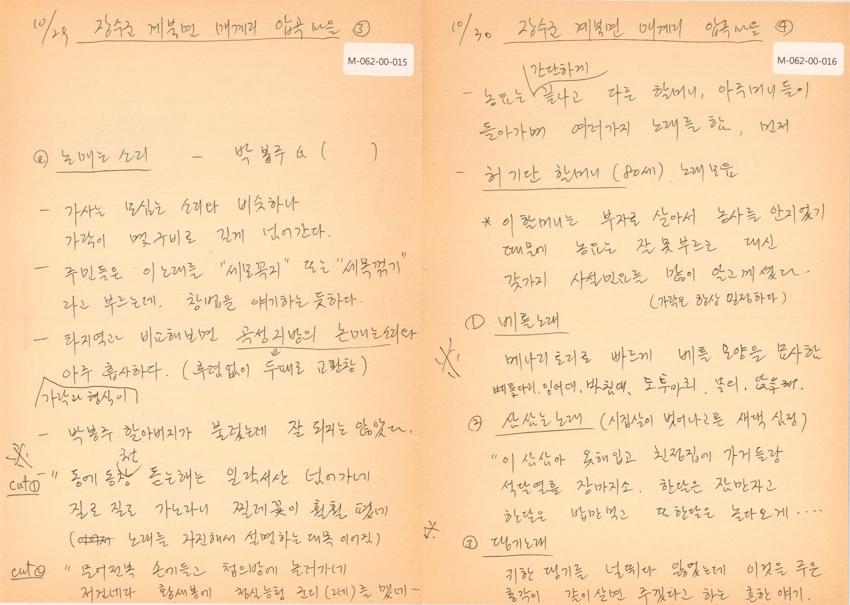 10/29 장수군 계북면 매계리 압곡마을 ③
M-062-00-015
② 논매는 소리 - 박봉주 & ( )
- 가사는 모심는 소리와 비슷하나
가락이 몇 구비로 길게 넘어간다.
- 주민들은 이 노래를 "세모꼭지" 또는 "세목꺾기"
라고 부르는데, 창법을 얘기하는 듯하다.
- 타지역과 비교해보면 곡성지방의 논매는소리와
아주 흡사하다. (후렴없이 두패로 교환창)
가락과 형식이
- 박봉주 할아버지가 불렀는데 잘 되지는 않았다.
cut① "동에 동창 돋는해는 일락서산 넘어가네
천
질로 질로 가노라니 찔레꽃이 활활 폈네
( 노래를 자진해서 설명하는 대목 이어짐)
cut② "문어전복 손에들고 첩의방에 놀러가네
저건네다 황새봉에 청실능청 군디(그네)를 맸네-
10/30 장수군 계북면 매계리 압곡마을 ④
M-062-00-016
간단하게
- 농요는 끝나고 다른 할머니, 아주머니들이
돌아가며 여러가지 노래를 함, 먼저
- 허기단 할머니 (80세) 노래모음
* 이 할머니는 부자로 살아서 농사를 안지었기
때문에 농요는 잘 못부르고 대신
갖가지 사설민요를 많이 알고계셨다.
(가락은 항상 일정하다)
① 베틀노래
메나리토리로 빠르게 베틀 모양을 묘사함
베틀다리, 잉어대, 바침대, 도투마리, 북의,
② 삼삼는노래 (시집살이 벗어나고픈 새댁 심정)
"이 삼삼아 옷해입고 친정집에 가거들랑
석달열흘 장마지소. 한달은 잠만자고
한달은 밥만먹고 또한달은 놀다오게 ....
③ 댕기노래
귀한 댕기를 널뛰다 잃었는데 이것을 주은
총각이 같이살면 주겠다고 하는 흔한 얘기.